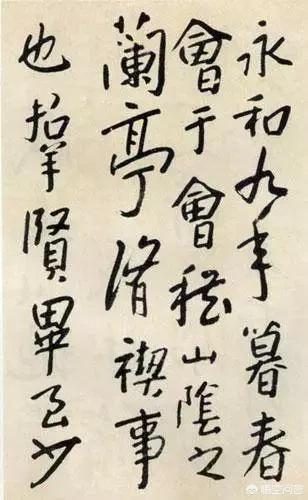 永和九年暮春
會于會稽山陰之
蘭亭脩禊事
也群賢畢至少
悟空问答